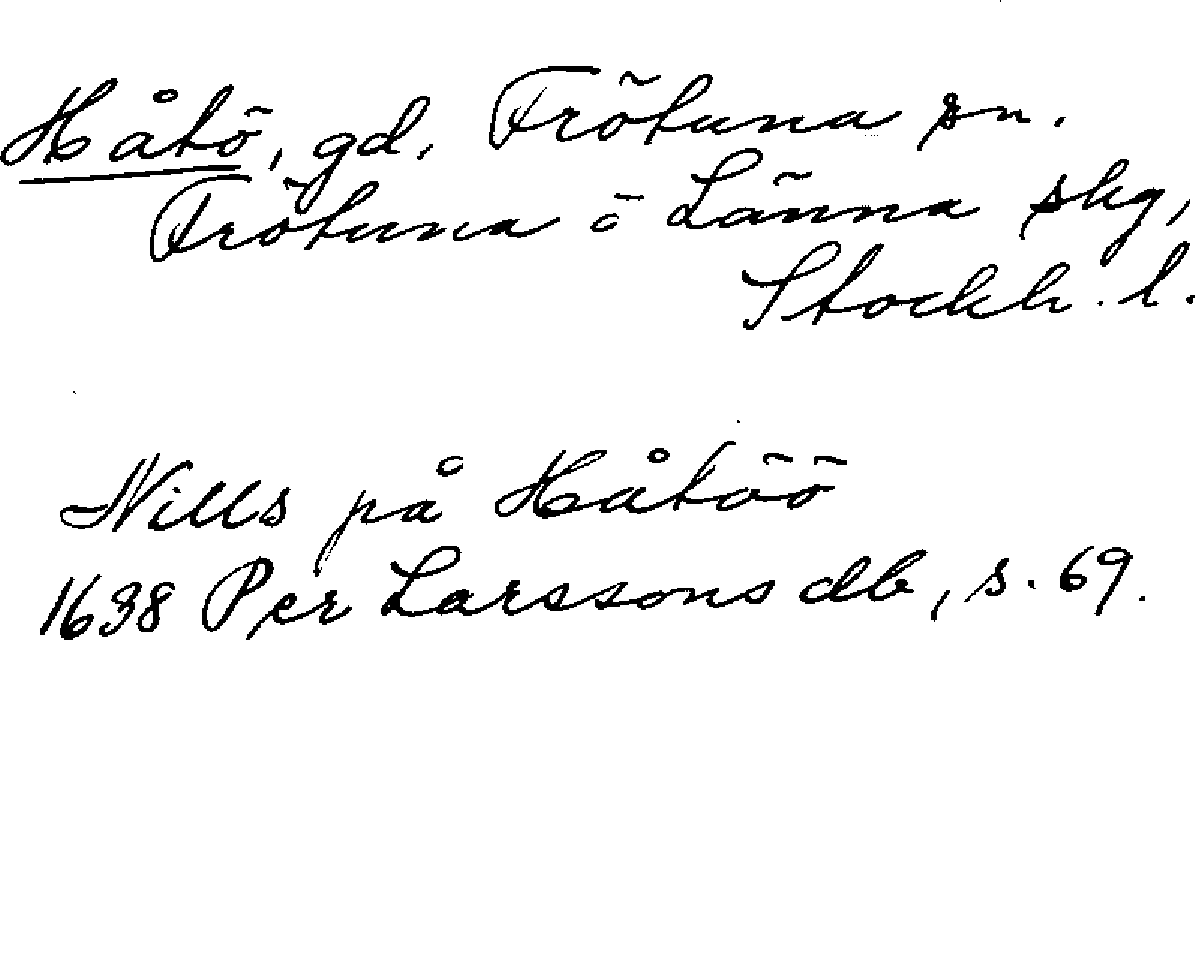 Håtö, gd, Frötuna sn.
Frötuna o Länna skg,
Stockh. l.
Nills på Håtöö
1638 Per Larssons db, s. 69.